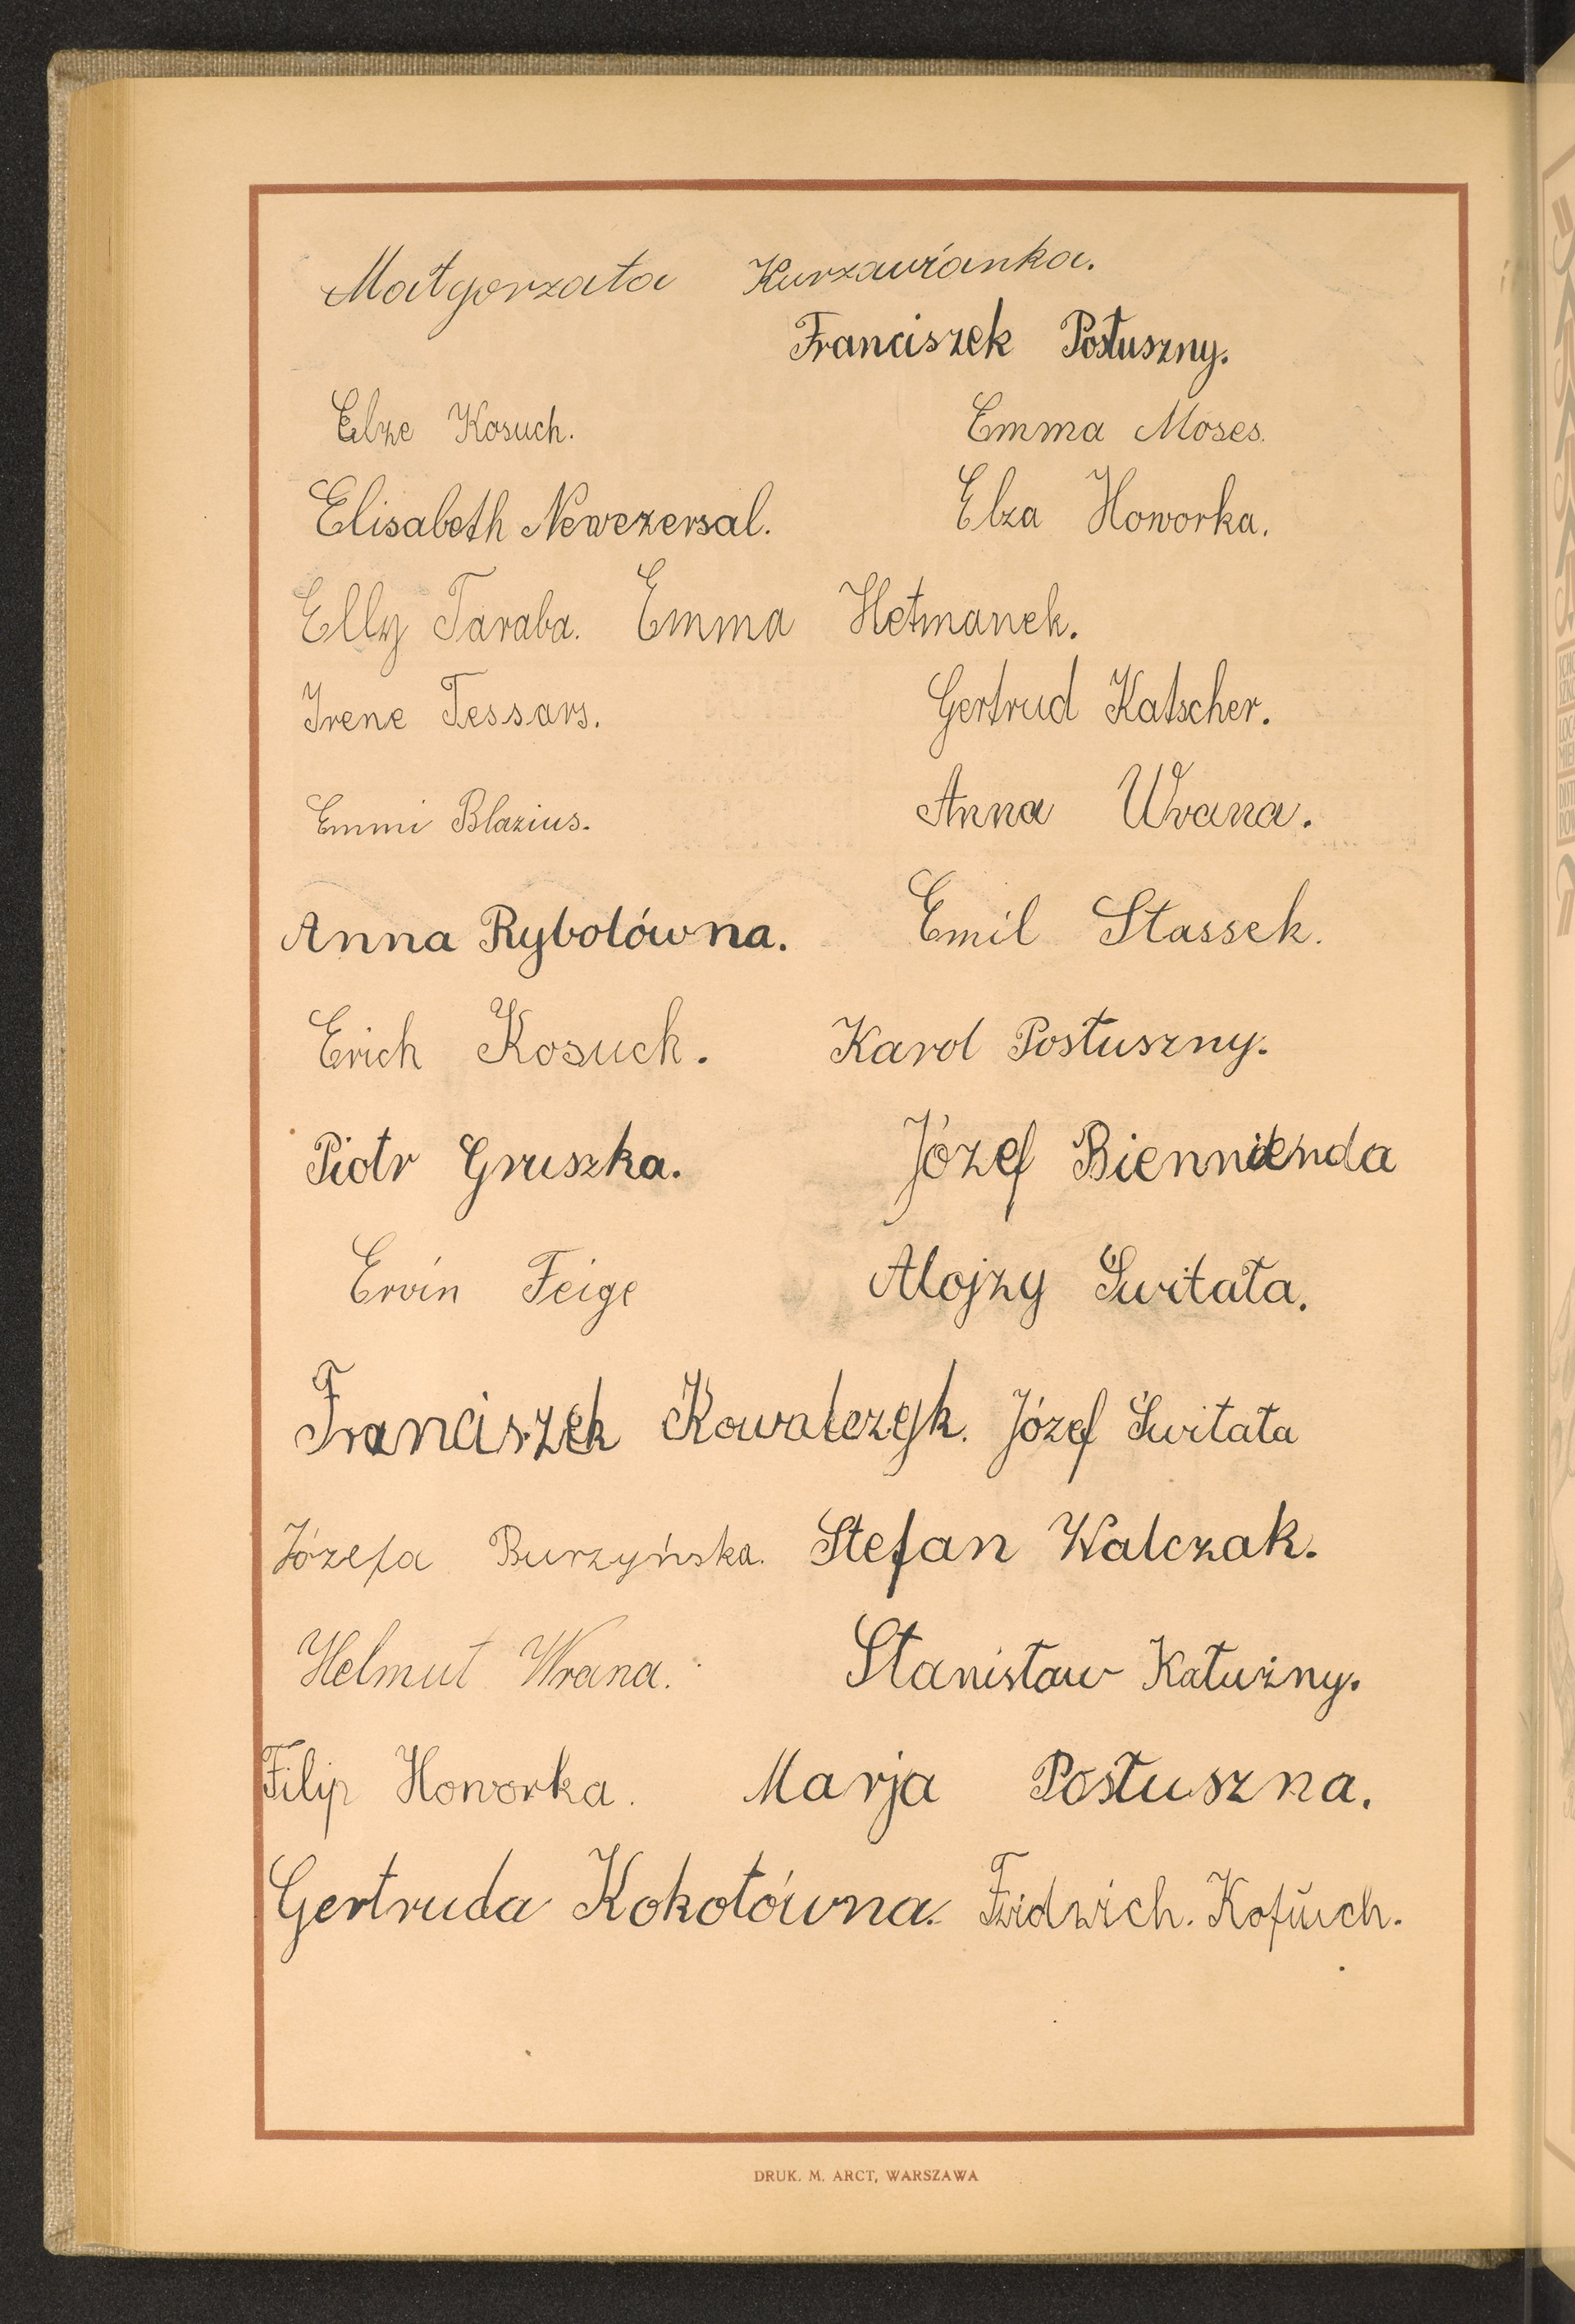 Małgorzata Kurzawianka.
Franciszek Posłuszny.
Elze Kosuch. Emma Moses.
Elisabeth Newezersal. Elza Howorka.
Elly Taraba. Emma Hetmanek.
Irene Tessars. Gertrud Katscher.
Emmi Blazius. Anna Wrana.
Anna Rybolówna. Emil Stassek.
Erich Kosuch. Karol Posłuszny.
Piotr Gruszka. Józef Biennienda
Ervin Feige Alojzy Świtała.
Franciszek Kowalczyk. Józef Świtała
Józefa Burzyńska. Stefan Walczak.
Helmut Wrana. Stanisław Kałużny.
Filip Howorka. Marja Posłuszna.
Gertruda Kokotówna. Kofŭch.
DRUK. M. ARCT, WARSZAWA